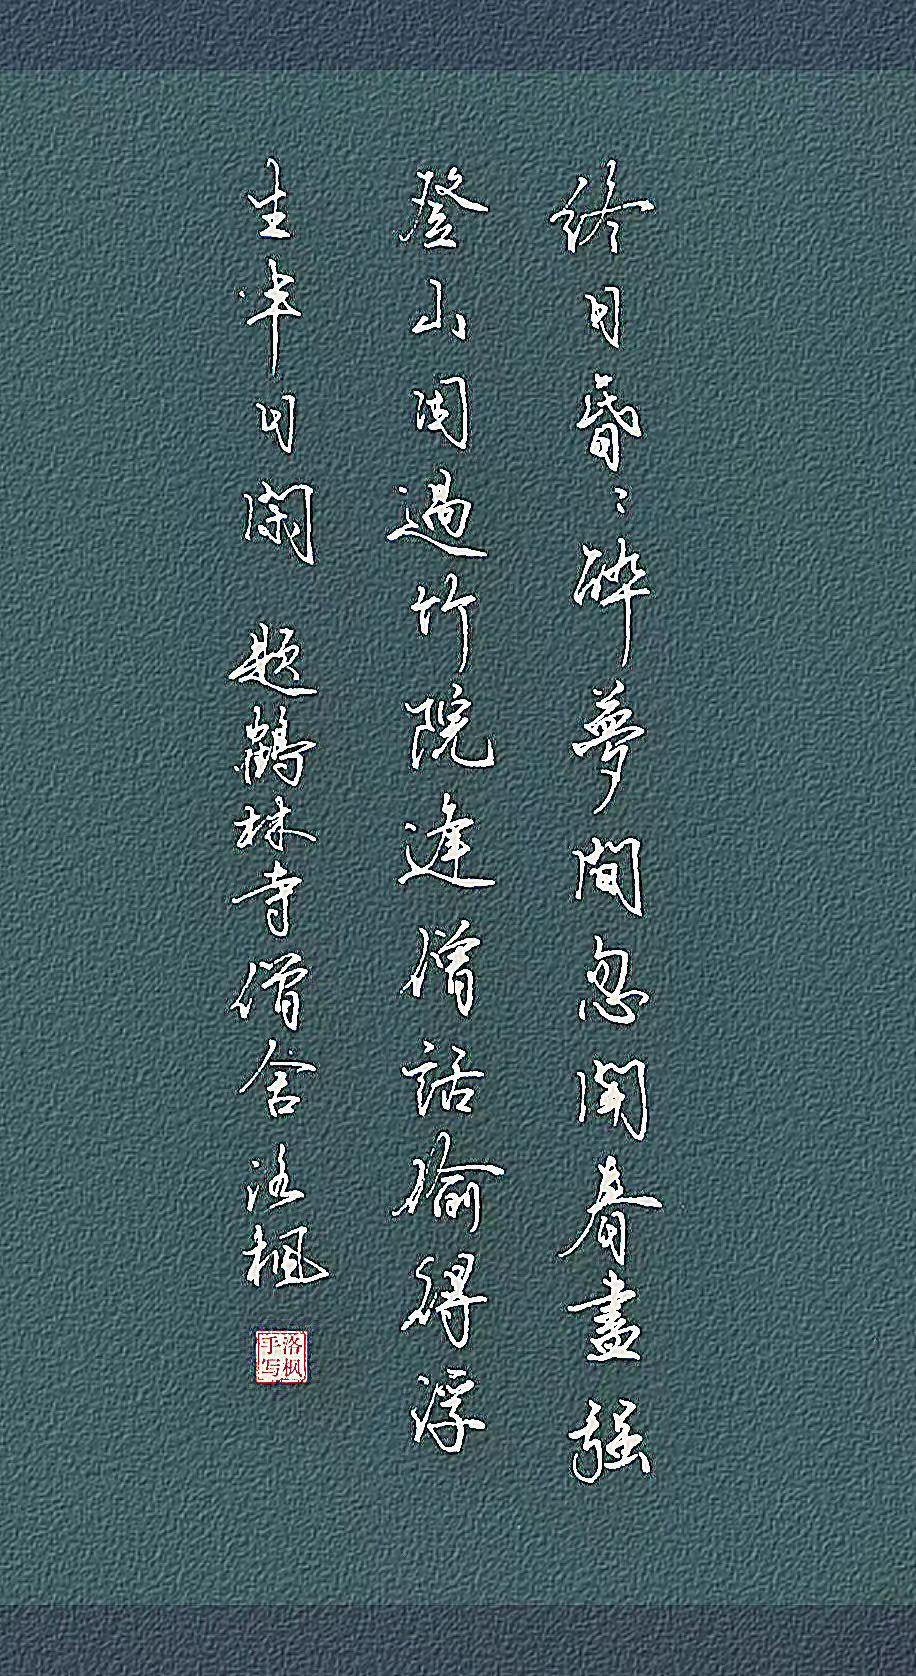 終日昏〻醉夢間忽聞春盡强
登山因過竹院逢僧話偷得浮
生半日閑 題鶴林寺僧舍 洛楓
洛枫手写